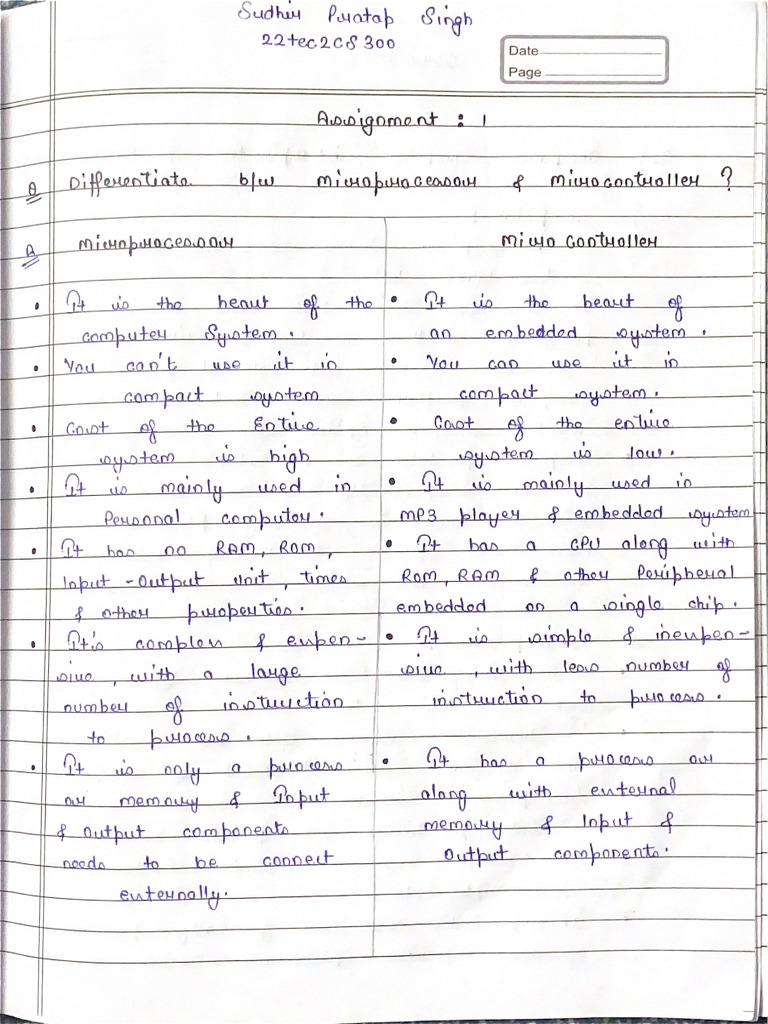 Sudhir Pratap Singh
22tec2CS300
Date
Page
Assignment : 1
Q Differentiate b/w microprocessor & microcontroller ?
A microprocessor
Micro Controller
• It is the heart of the
computer System.
• You can't use it in
compact system
• Cost of the Entire
system is high
• It is mainly used in
Personal computer.
• It has no RAM, ROM,
Input-Output unit, times
& other properties.
• It's complex & expen-
sive, with a large
number of instruction
to process.
• It is only a process
or memory & Input
& output components
needs to be connect
externally.
• It is the heart of
an embedded system.
• You can use it in
compact system.
• Cost of the entire
system is low.
• It is mainly used in
MP3 player & embedded system
• It has a CPU along with
ROM, RAM & other Peripheral
embedded on a single chip.
• It is simple & inexpen-
sive, with less number of
instruction to process.
• It has a process or
along with external
memory & Input &
Output components.